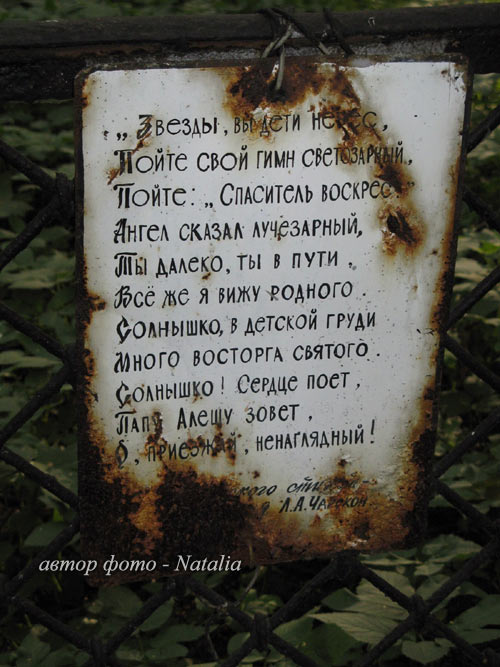 „Звезды, вы дети небес,
Пойте свой гимн светозарный,
Пойте: „Спаситель воскрес!"
Ангел сказал лучезарный,
Ты далеко, ты в пути.
Всё же я вижу родного
Солнышко, в детской груди
Много восторга святого.
Солнышко! Сердце поет,
Папу Алешу зовет,
О, приезжай, ненаглядный!
Л.А. Чарской
автор фото - Natalia